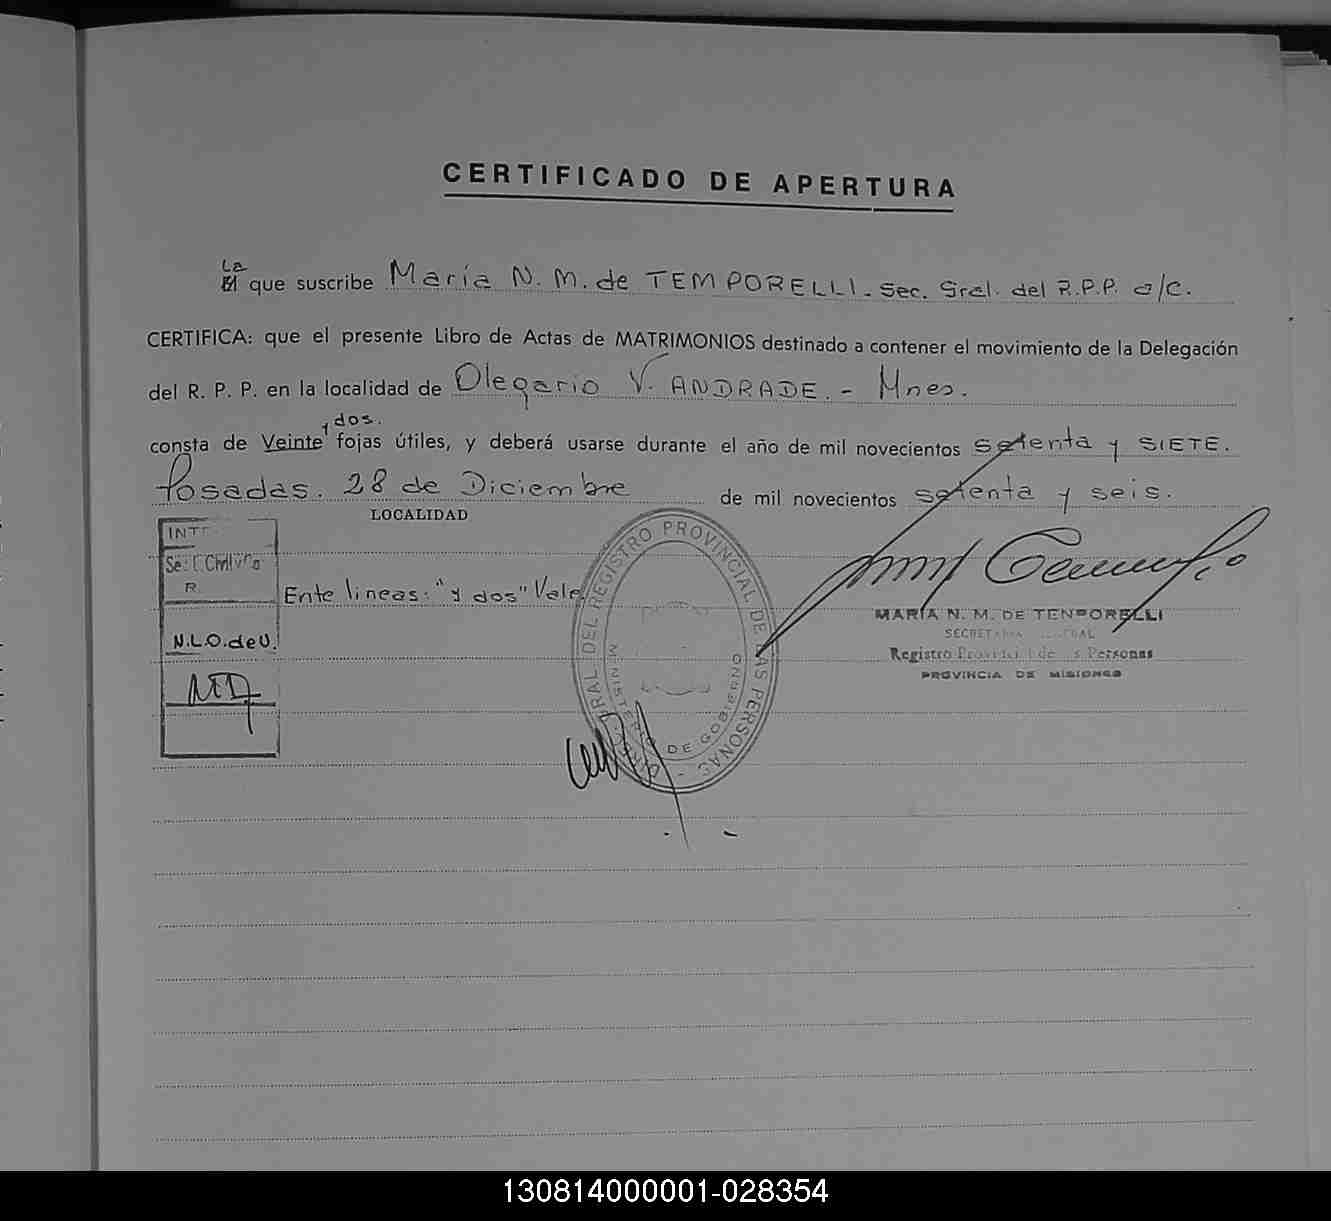 CERTIFICADO DE APERTURA
La
El que suscribe María N. M. de TEMPORELLI. Sec. Gral. del R.P.P. a/c.
CERTIFICA: que el presente Libro de Actas de MATRIMONIOS destinado a contener el movimiento de la Delegación
del R. P. P. en la localidad de Olegario V. ANDRADE. - Mnes.
y dos.
consta de Veinte fojas útiles, y deberá usarse durante el año de mil novecientos setenta y SIETE.
Posadas. 28 de Diciembre de mil novecientos setenta y seis.
LOCALIDAD
Ente lineas: "y dos" Vale
N.L.O. de U.
REGISTRO PROVINCIAL DE LAS PERSONAS
MINISTERIO DE GOBIERNO
MARIA N. M. DE TEMPORELLI
SECRETARIA GENERAL
Registro Provincial de las Personas
PROVINCIA DE MISIONES
130814000001-028354